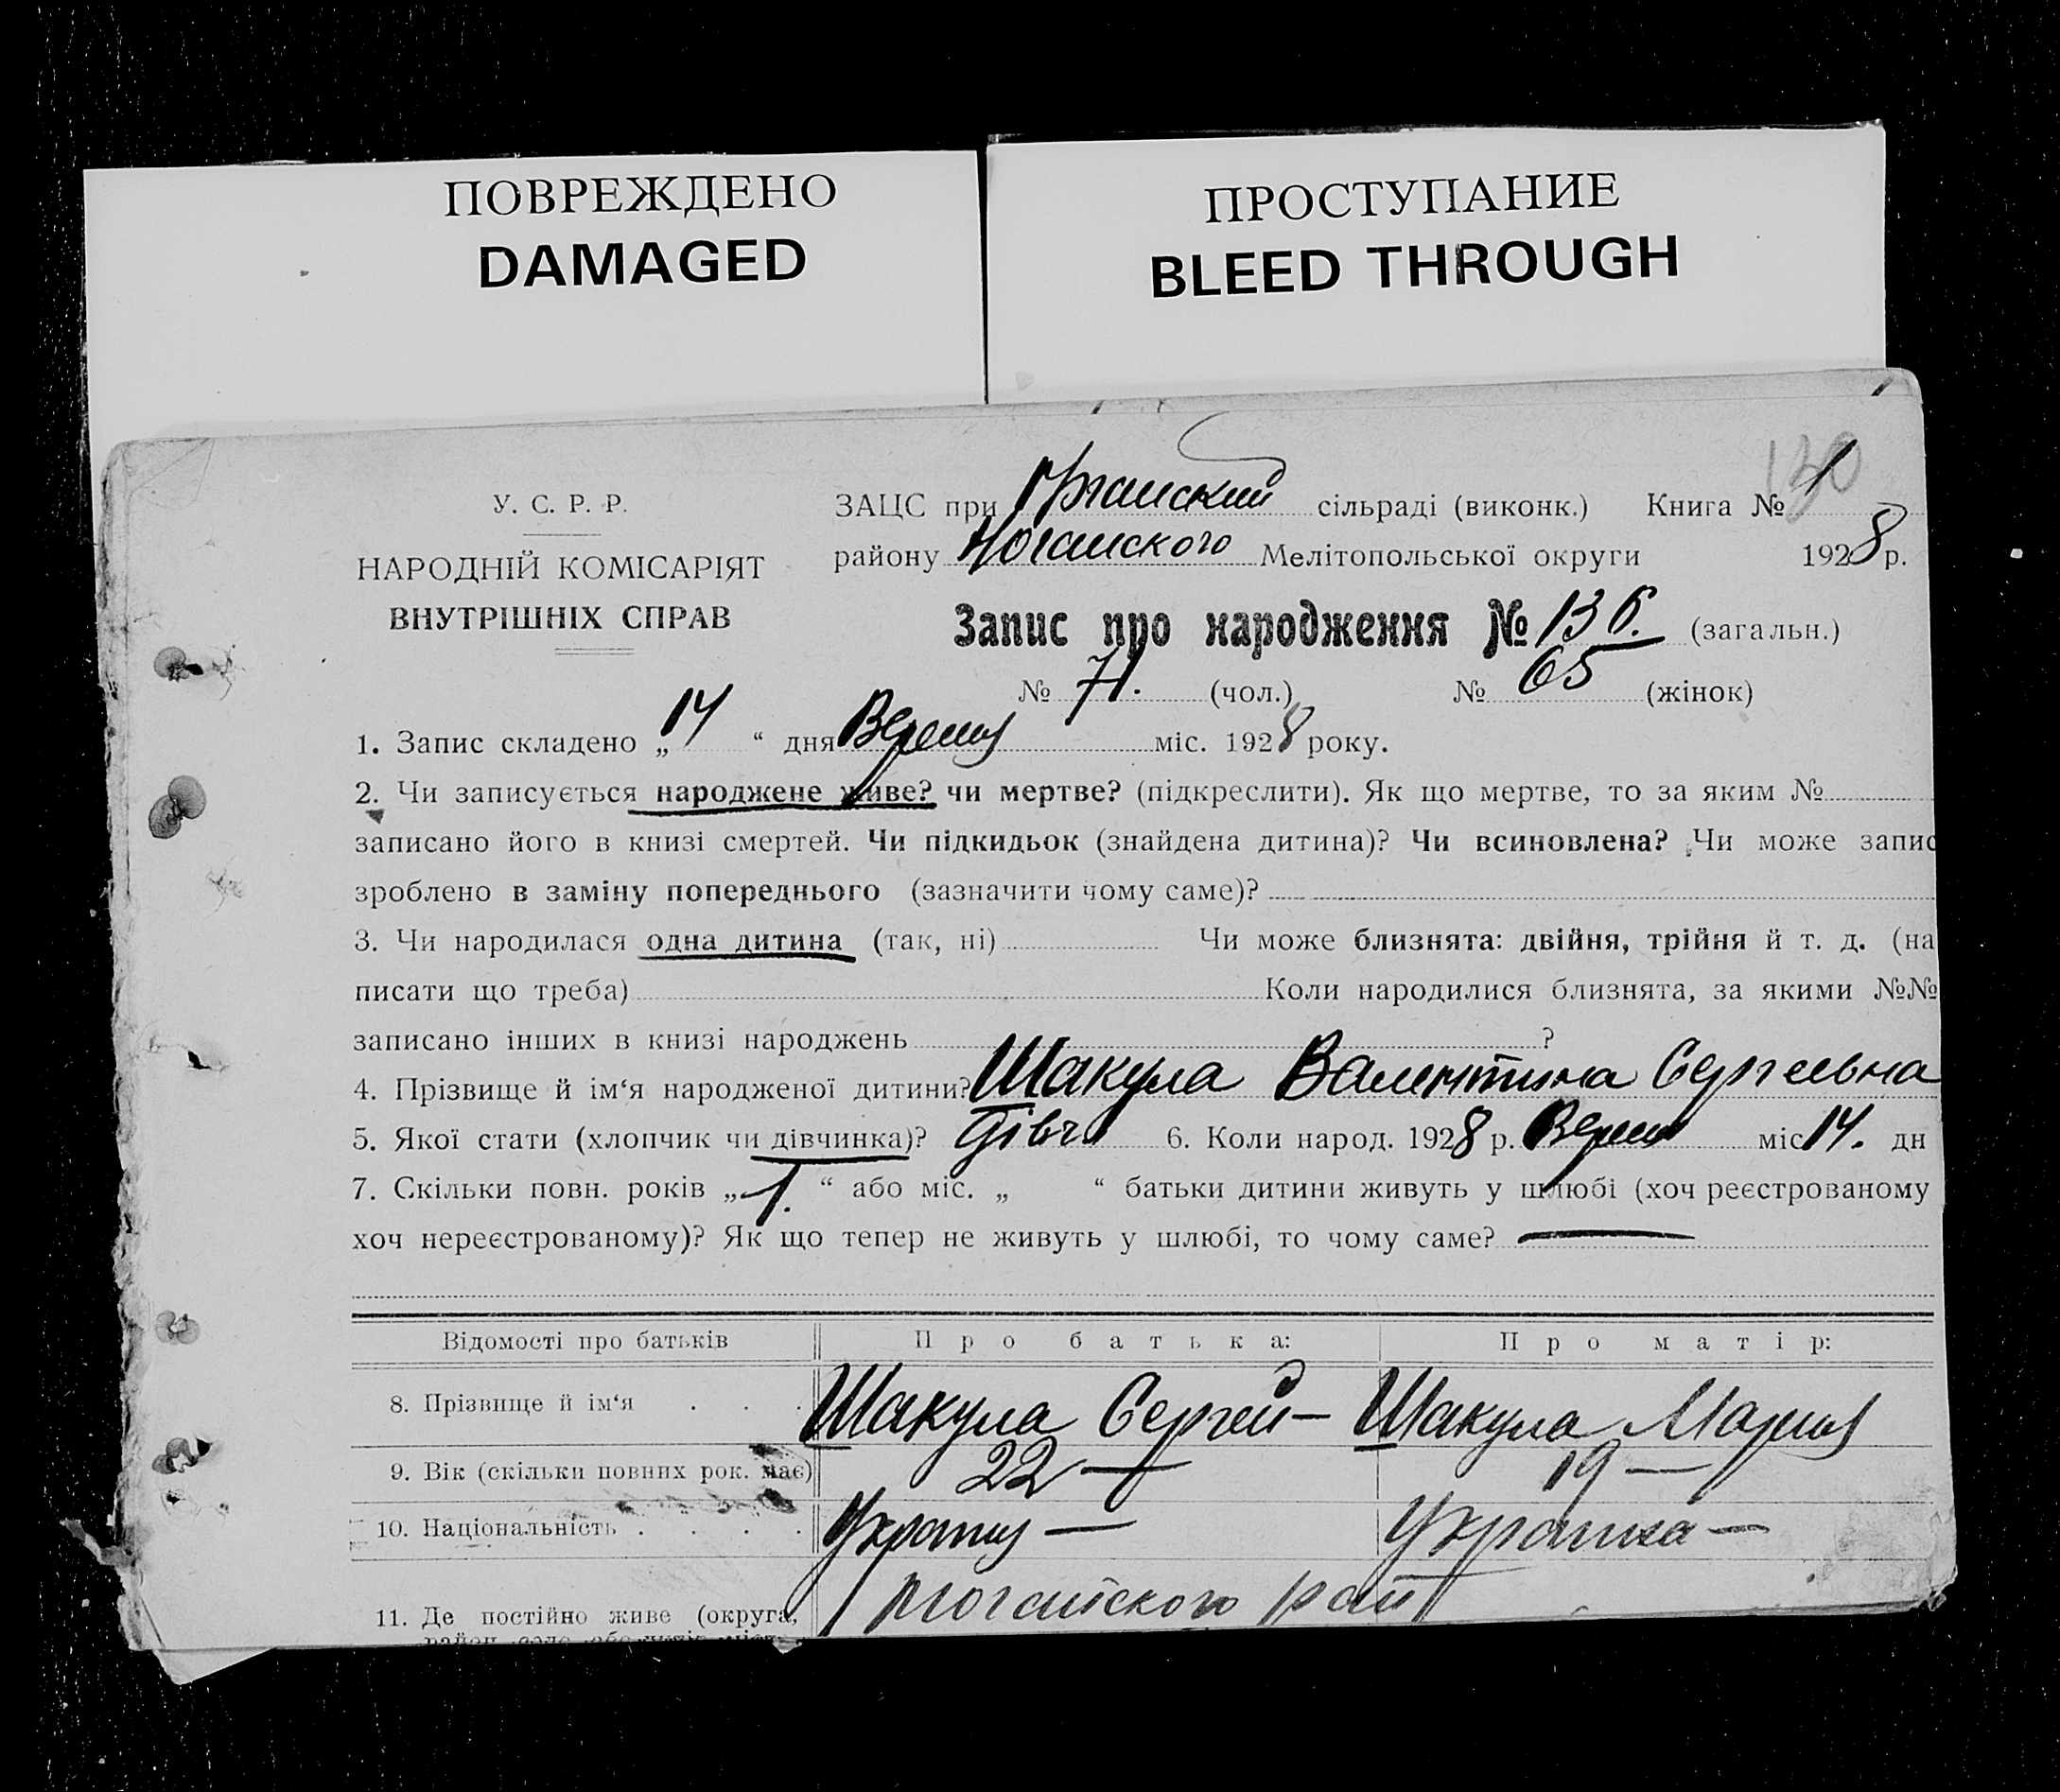 ПОВРЕЖДЕНО
DAMAGED
ПРОСТУПАНИЕ
BLEED THROUGH
130
У. С. Р. Р.
НАРОДНІЙ КОМІСАРІЯТ
ВНУТРІШНІХ СПРАВ
ЗАЦС при сільраді (виконк.) Книга № 1
району Ногайского Мелітопольської округи 1928 р.
Запис про народження № 136. (загальн.)
№ 71. (чол.) № 65 (жінок)
1. Запис складено „14“ дня міс. 1928 року.
2. Чи записується народжене живе? чи мертве? (підкреслити). Як що мертве, то за яким №
записано його в книзі смертей. Чи підкидьок (знайдена дитина)? Чи всиновлена? Чи може запис
зроблено в заміну попереднього (зазначити чому саме)?
3. Чи народилася одна дитина (так, ні) Чи може близнята: двійня, трійня й т. д. (на
писати що треба) Коли народилися близнята, за якими №№
записано інших в книзі народжень ?
4. Прізвище й ім‘я народженої дитини? Шакула Валентина Сергеевна
5. Якої стати (хлопчик чи дівчинка)? дівч 6. Коли народ. 1928 р. Верес міс 14. дн
7. Скільки повн. років „1.“ або міс. „ “ батьки дитини живуть у шлюбі (хоч реєстрованому
хоч нереєстрованому)? Як що тепер не живуть у шлюбі, то чому саме? —
Відомості про батьків Про батька: Про матір:
8. Прізвище й ім‘я . . . Шакула Сергей — Шакула Мария
9. Вік (скільки повних рок. має) 22 — 19 —
10. Національність . . . . —  —
11. Де постійно живе (округа, Ногайского рай
район, село або